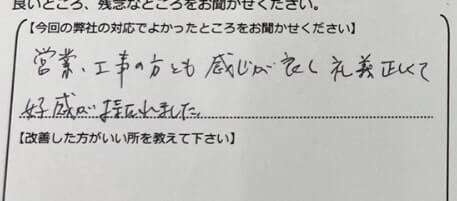 良いところ、残念なところをお聞かせください。
【今回の弊社の対応でよかったところをお聞かせください】
営業、工事の方とも感じが良く礼義正しくて
好感が持たれました
【改善した方がいい所を教えて下さい】